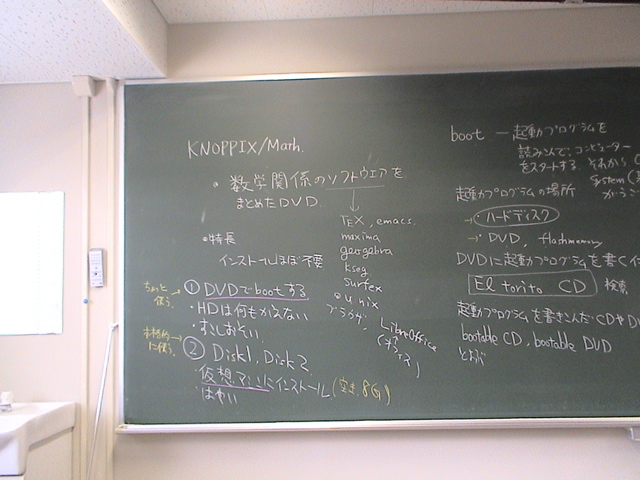 KNOPPIX/Math.
・数学関係のソフトウェアを
まとめたDVD.
TEX, emacs.
maxima
geogebra
kseg
surfex
unix
ブラウザ,
LibreOffice
(オフィス)
特長
インストールほぼ不要
ちょっと使う
① DVDでbootする
・HDは何もかえない
・すこしおそい.
本格的に使う.
② Disk1, Disk2
・仮想マシンにインストール (空き 8G)
・はやい
boot — 起動プログラムを
読み込んで, コンピューター
をスタートする それから
System
起動プログラムの場所
→ ハードディスク
→ DVD, flashmemory
DVDに起動プログラムを書く
El torito CD 検索
起動プログラムを書きこんだCDや
bootable CD, bootable DVD
とよぶ